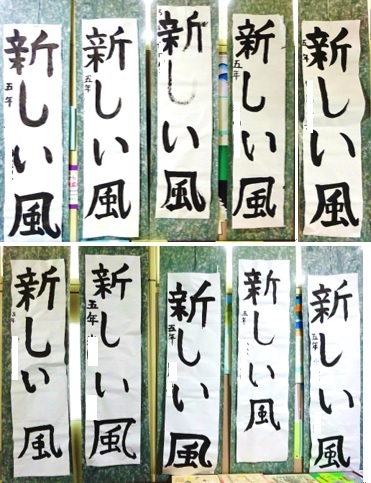 新しい風
五年
新しい風
五年
新しい風
新しい風
五年
新しい風
五年
新しい風
五年
新しい風
五年
新しい風
五年
新しい風
五年
新しい風
五年